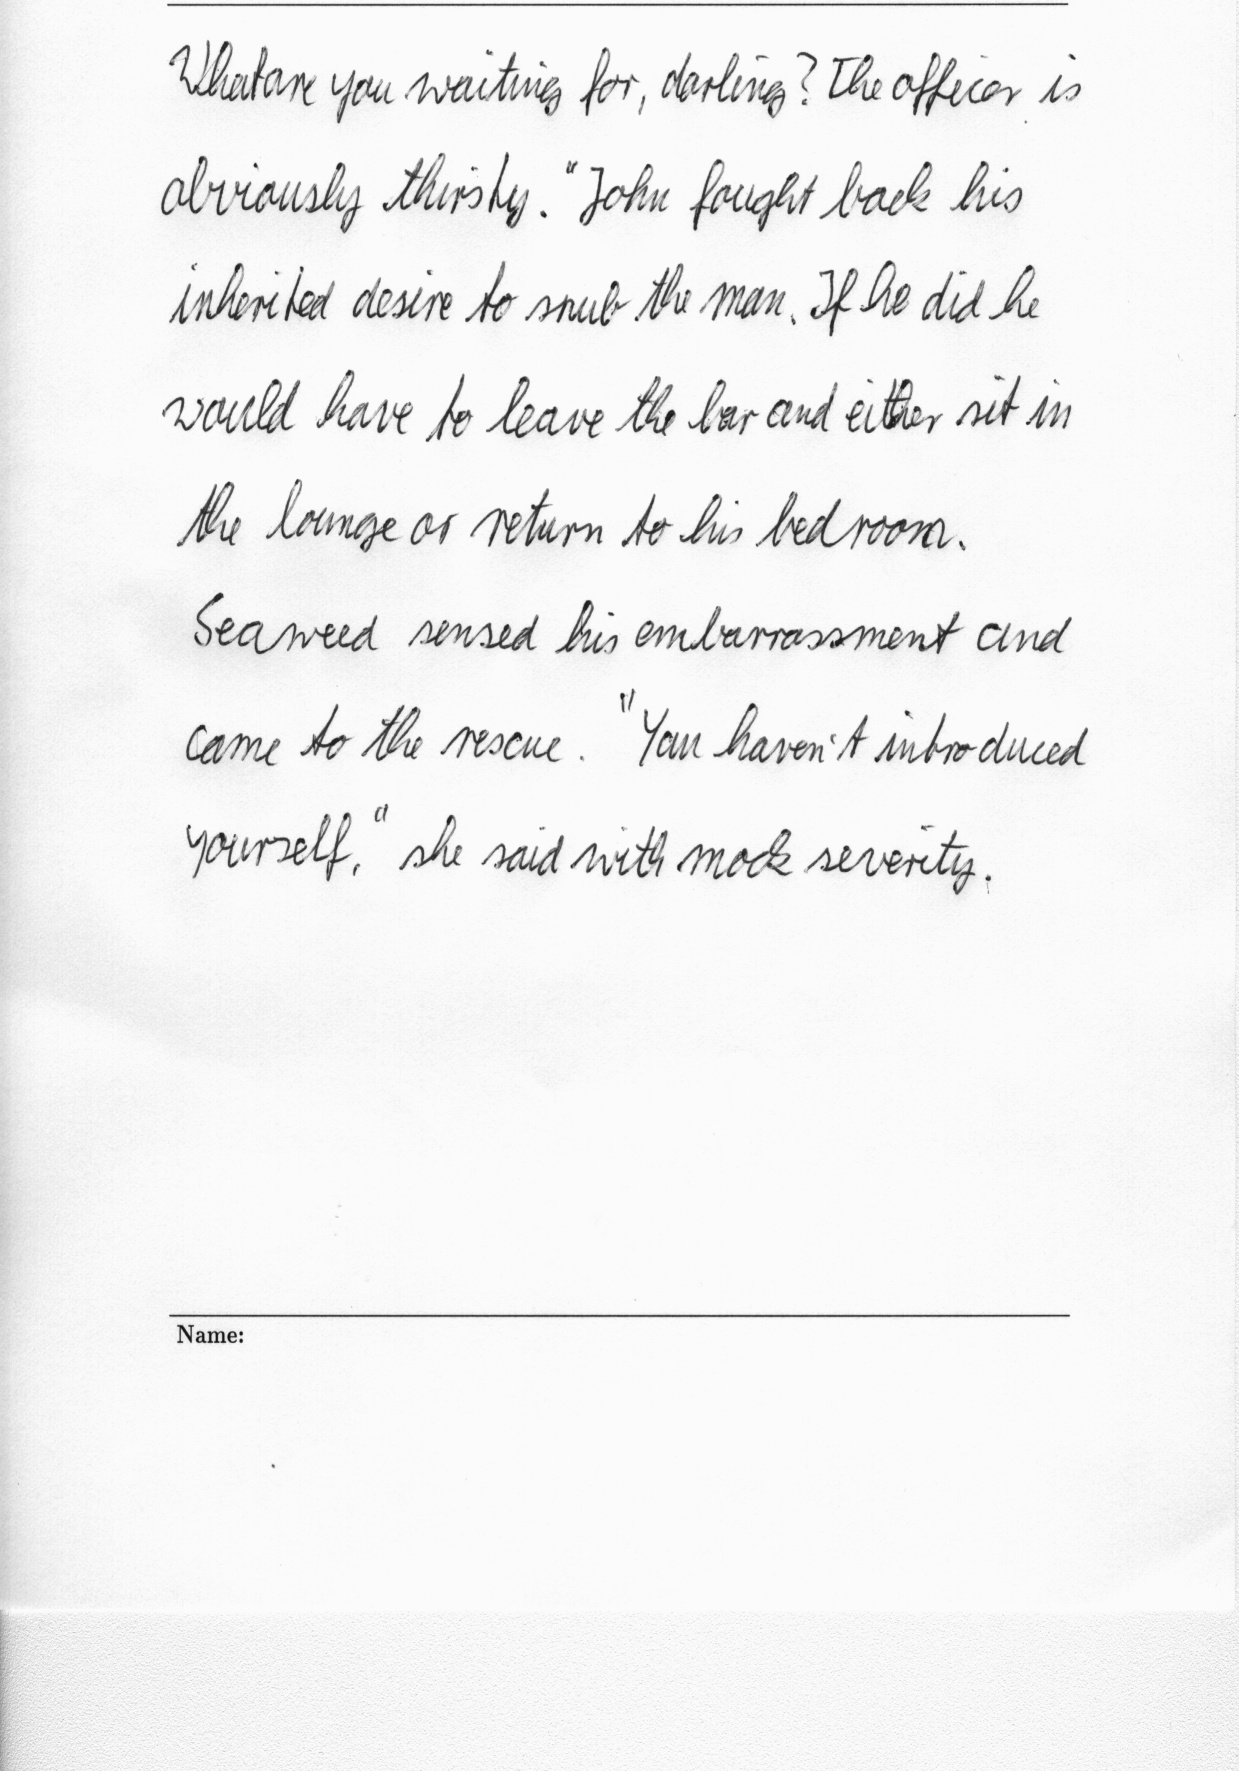 What are you waiting for, darling? The officer is
obviously thirsty." John fought back his
inherited desire to snub the man. If he did he
would have to leave the bar and either sit in
the lounge or return to his bedroom.
Seaweed sensed his embarrassment and
came to the rescue. "You haven't introduced
yourself," she said with mock severity.
Name: